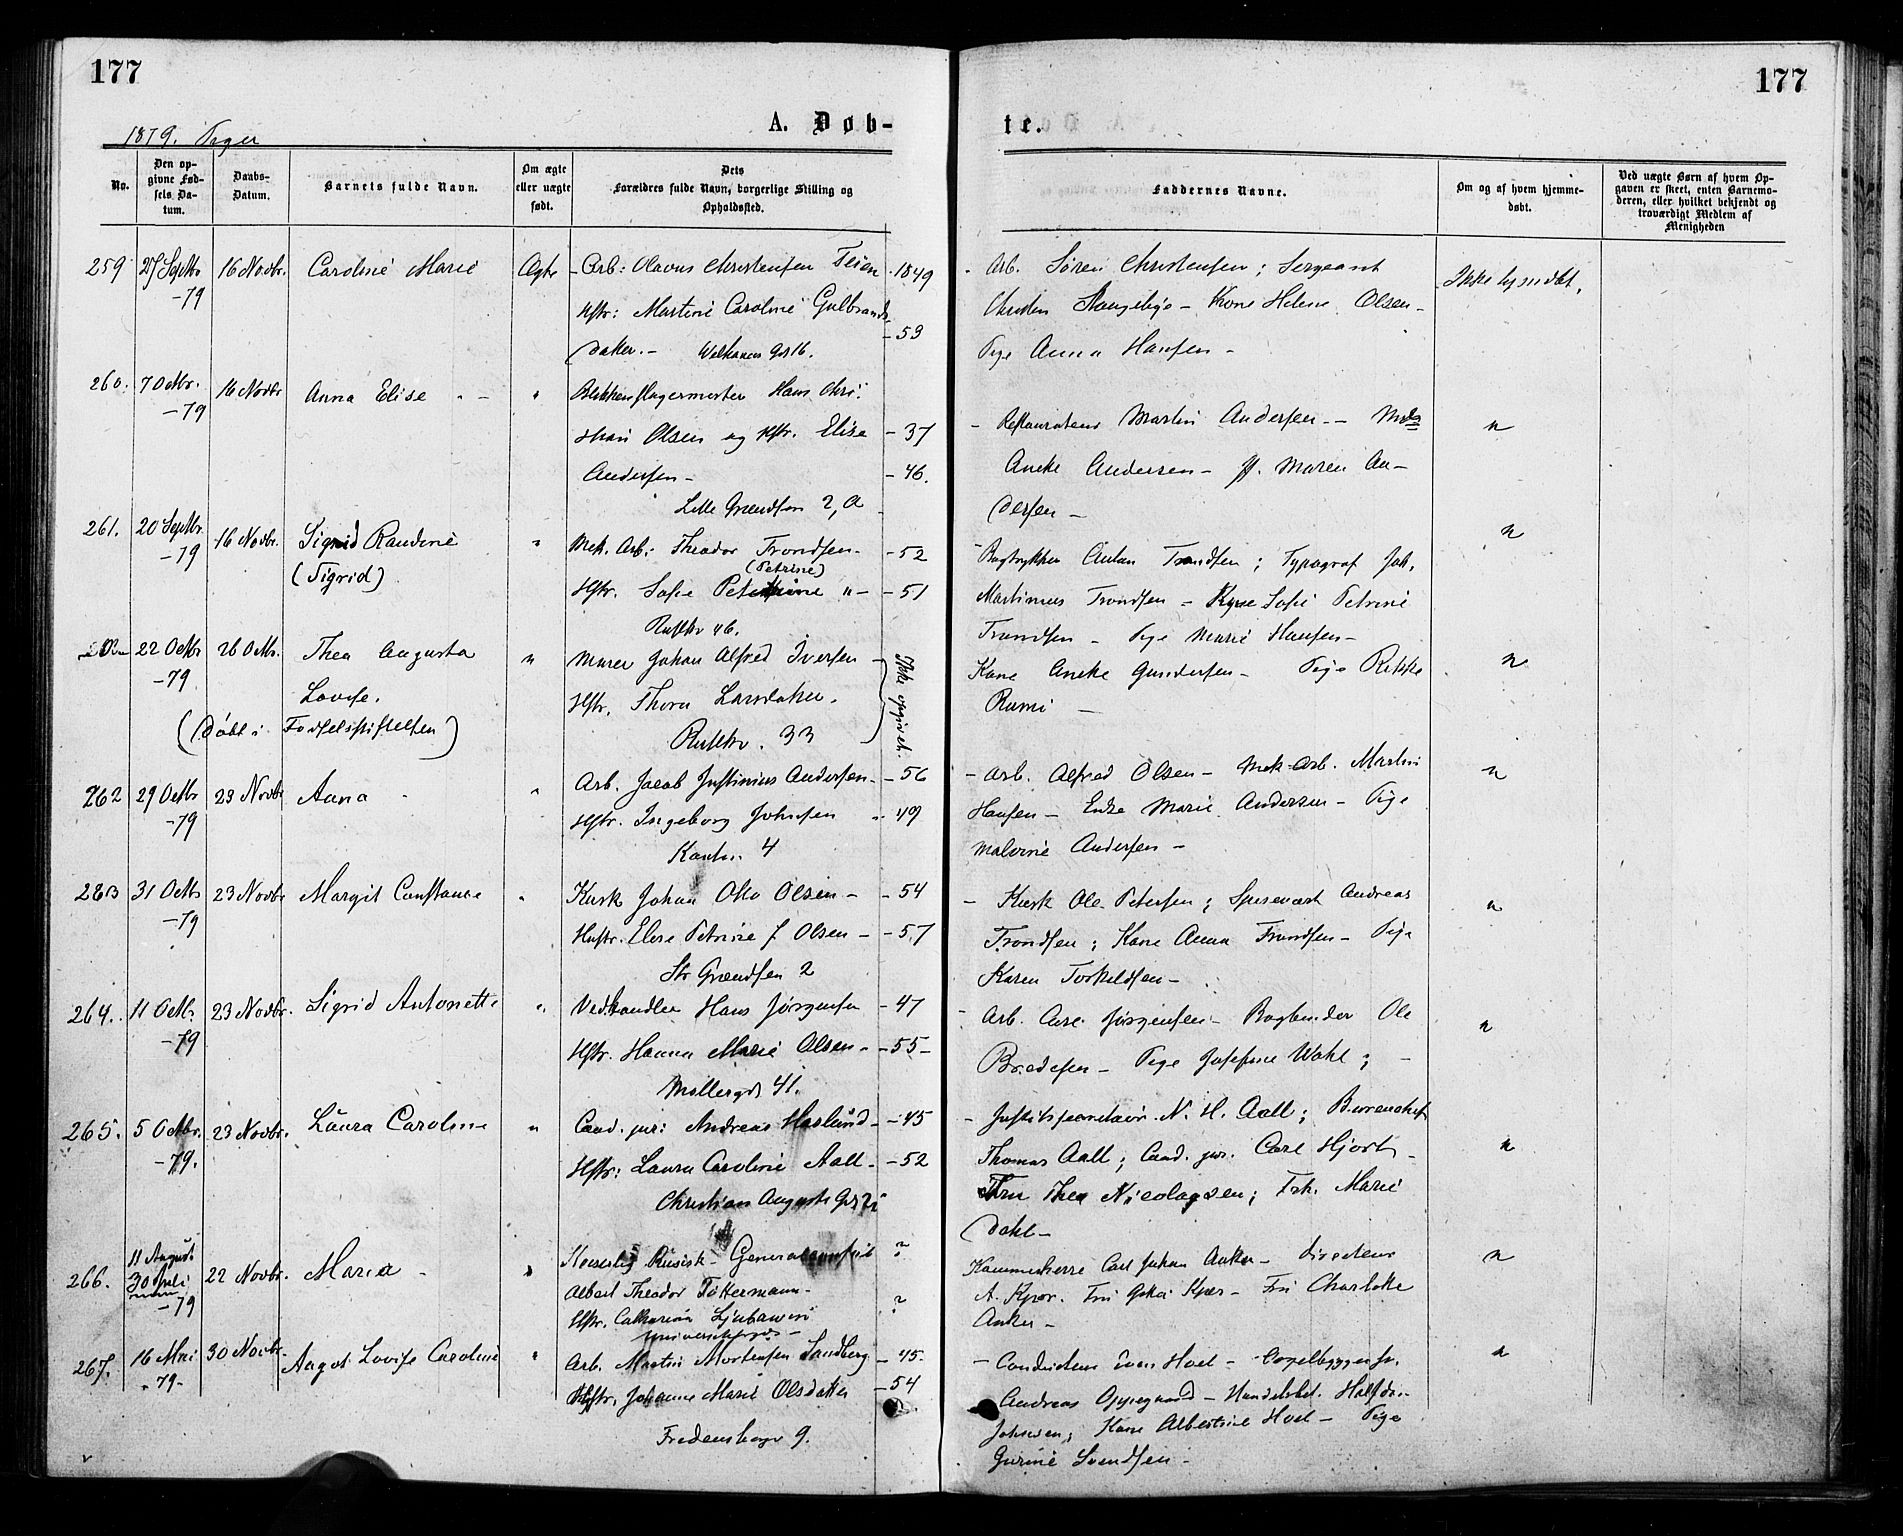 177
177
A. Døb-
te.
1879. Piger
No.
Den op-
givne Fød-
sels Da-
tum.
Daabs-
Datum.
Barnets fulde Navn.
Om ægte
eller uægte
født.
Dets
Forældres fulde Navn, borgerlige Stilling og
Opholdssted.
Faddernes Navne.
Om og af hvem hjemme-
døbt.
Ved uægte Børn af hvem Op-
gaven er skeet, enten Barnemo-
deren, eller hvilket bekjendt og
troværdigt Medlem af
Menigheden
259 27 Septbr 16 Novbr. Caroline Marie Ægte - Arb: Olavus Christensen 1849
-79
Hstr: Martine Caroline Gulbrands - 53
datter. - Gd 16.
- Arb. Søren Christensen; Sergeant
Kone Helene Olsen -
Pige Anna Hansen -
Ikke hjemdøbt.
260. 7 Octbr. 16 Novbr Anna Elise " - " Blikkenslagermester Hans Chri:
-79
stian Olsen og Hstr. Elise - 37
Andersen - - 46.
Lille Grændsen 2, a
- Restaurateur Martin Andersen - -
Andersen - Maren An-
dersen -
n
261. 20 Septbr 16 Novbr. Sigrid Randine " Mek. Arb: Theodor Trondsen - - 52
-79
(Sigrid)
(Petrine)
Hstr. Sofie " - - 51
46.
- Bogtrykker Anton Trondsen; Typograf Joh.
Martinus Trondsen - Kone Sofie Petrine
Trondsen - Pige Marie Hansen -
n
22 Octbr 26 Octbr. Thea Augusta n Murer Johan Alfred Iversen
-79
Lovise.
Hstr. Thora Larsdatter.
(Døbt i Fødselsstiftelsen)
33
Ikke opgivet.
Kone Gundersen - Pige Rikke
n
262 29 Octbr 23 Novbr Anna - " Arb. Jacob Justinius Andersen - - 56
-79
Hstr. Ingeborg Johnsen " 49
4
- Arb. Alfred Olsen - Mek. Arb. Martin
Hansen - Enke Marie Andersen - Pige
Malvine Andersen -
n
263 31 Octbr 23 Novbr Margit Constance " Kusk Johan Otto Olsen - - 54
-79
Hustr. Elise Petrine f. Olsen - - 57
Str Grændsen 2
- Kusk Ole Petersen; Spisevært Andreas
Trondsen; Kone Anna Trondsen - Pige
Karen Torkildsen -
n
264. 11 Octbr 23 Novbr. Sigrid Antonette " Vedhandler Hans Jørgensen - 47
-79
Hstr. Hanna Marie Olsen - - 55 -
Møllergd 41.
Arb. Carl Jørgensen - Bogbinder Ole
Bredesen - Pige Josefine Wahl;
n
265. 5 Octbr. 23 Novbr. Laura Caroline n Cand. jur: Andreas Haslund - - 45
-79.
Hstr: Laura Caroline Aall - - 52
Christian Augusts Gd
- N. H. Aall; Bureauchef
Thomas Aall; Cand. jur. Carl Hjort -
Fru Thea Nicolaysen; Frk. Marie
Dahl -
n
11 August
266. 30 Juli 22 Novbr. Maria - " Keiserlig Russisk - ?
-79
Albert Theodor Tøttermann -
Hstr. Catharina ?
Universitetsgd -
Kammerherre Carl Johan Anker - Directeur
A. Kjær. Fru Kjær - Fru Charlotte
Anker -
n
267. 16 Mai 30 Novbr. Aagot Lovise Caroline " Arb. Martin Mortensen Sandberg - 45 -
-79-
Hstr. Johanne Marie Olsdatter - 54
Fredensborgv 9.
- Conducteur Iver Hoel -
Andreas Oppegaard - Handelsbet. Halfdan
Johnsen; Kone Albertine Hoel - Pige
Gurine Svendsen -
n